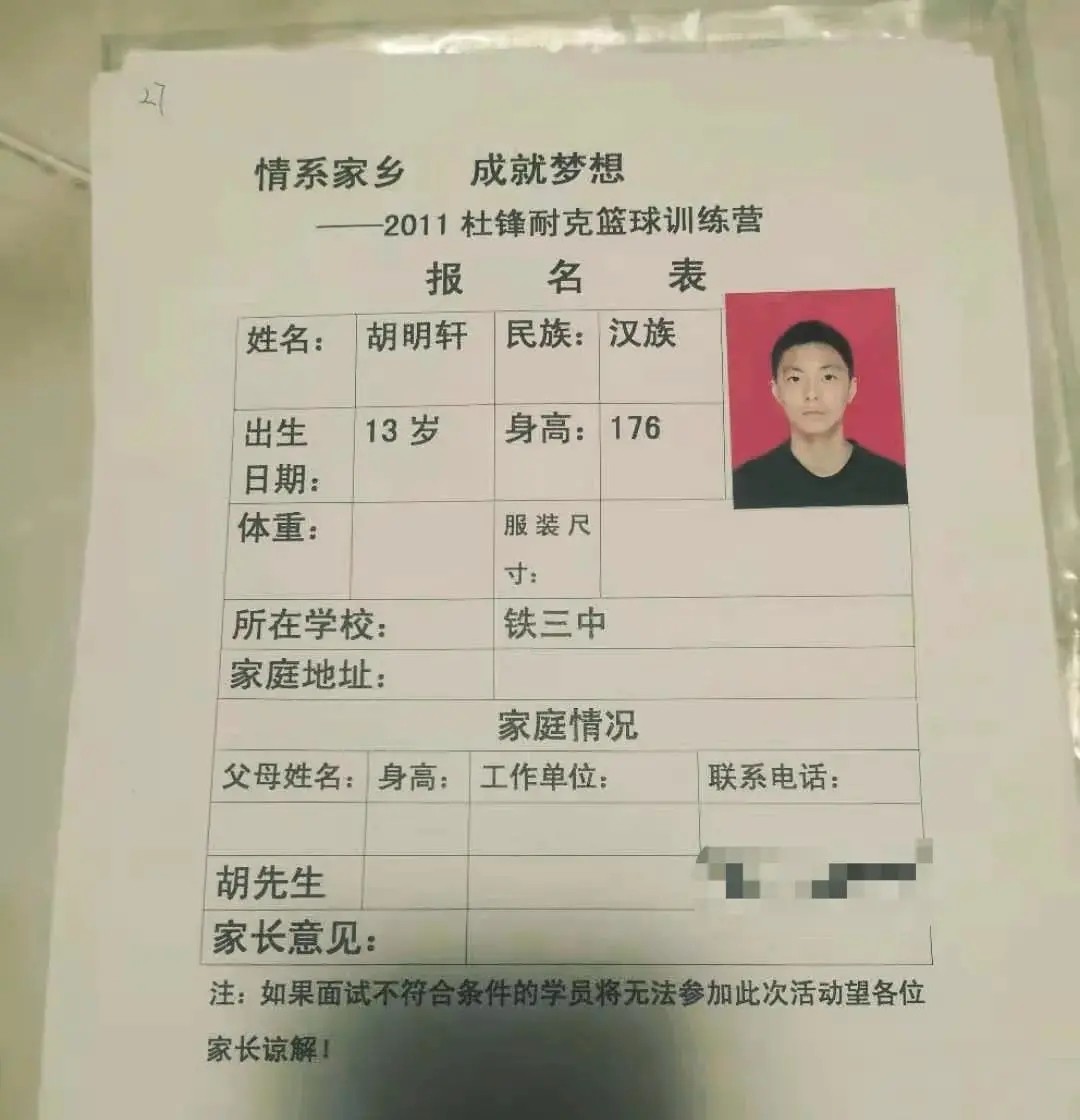 27
情系家乡 成就梦想
——2011 杜锋耐克篮球训练营
报 名 表
姓名： 胡明轩 民族： 汉族
出生日期： 13 岁 身高： 176
体重： 服装尺寸：
所在学校： 铁三中
家庭地址：
家庭情况
父母姓名： 身高： 工作单位： 联系电话：
胡先生
家长意见：
注：如果面试不符合条件的学员将无法参加此次活动望各位
家长谅解！